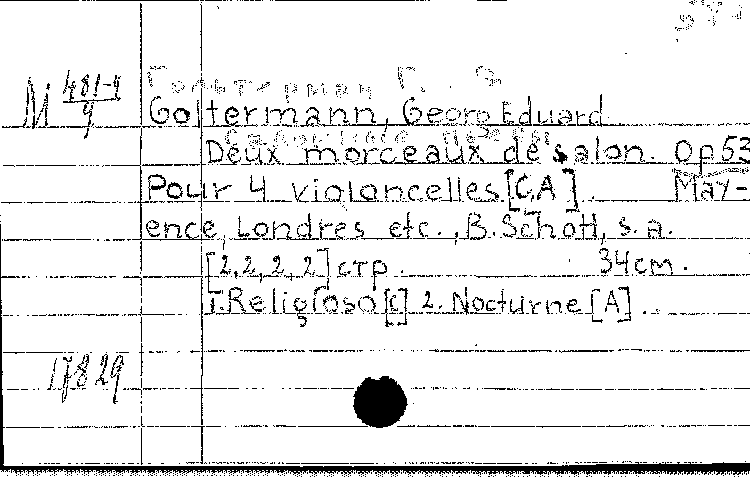 Гольтерман Г. Э.
М 481-4/9
Goltermann, Georg Eduard
Салонные пьесы
Deux morceaux de salon. Op 53
Pour 4 violoncelles [C, A]. May-
ence, Londres etc., B. Schott, s. a.
[2, 2, 2, 2] стр. 34 см.
1. Religioso [c] 2. Nocturne [A].
17829